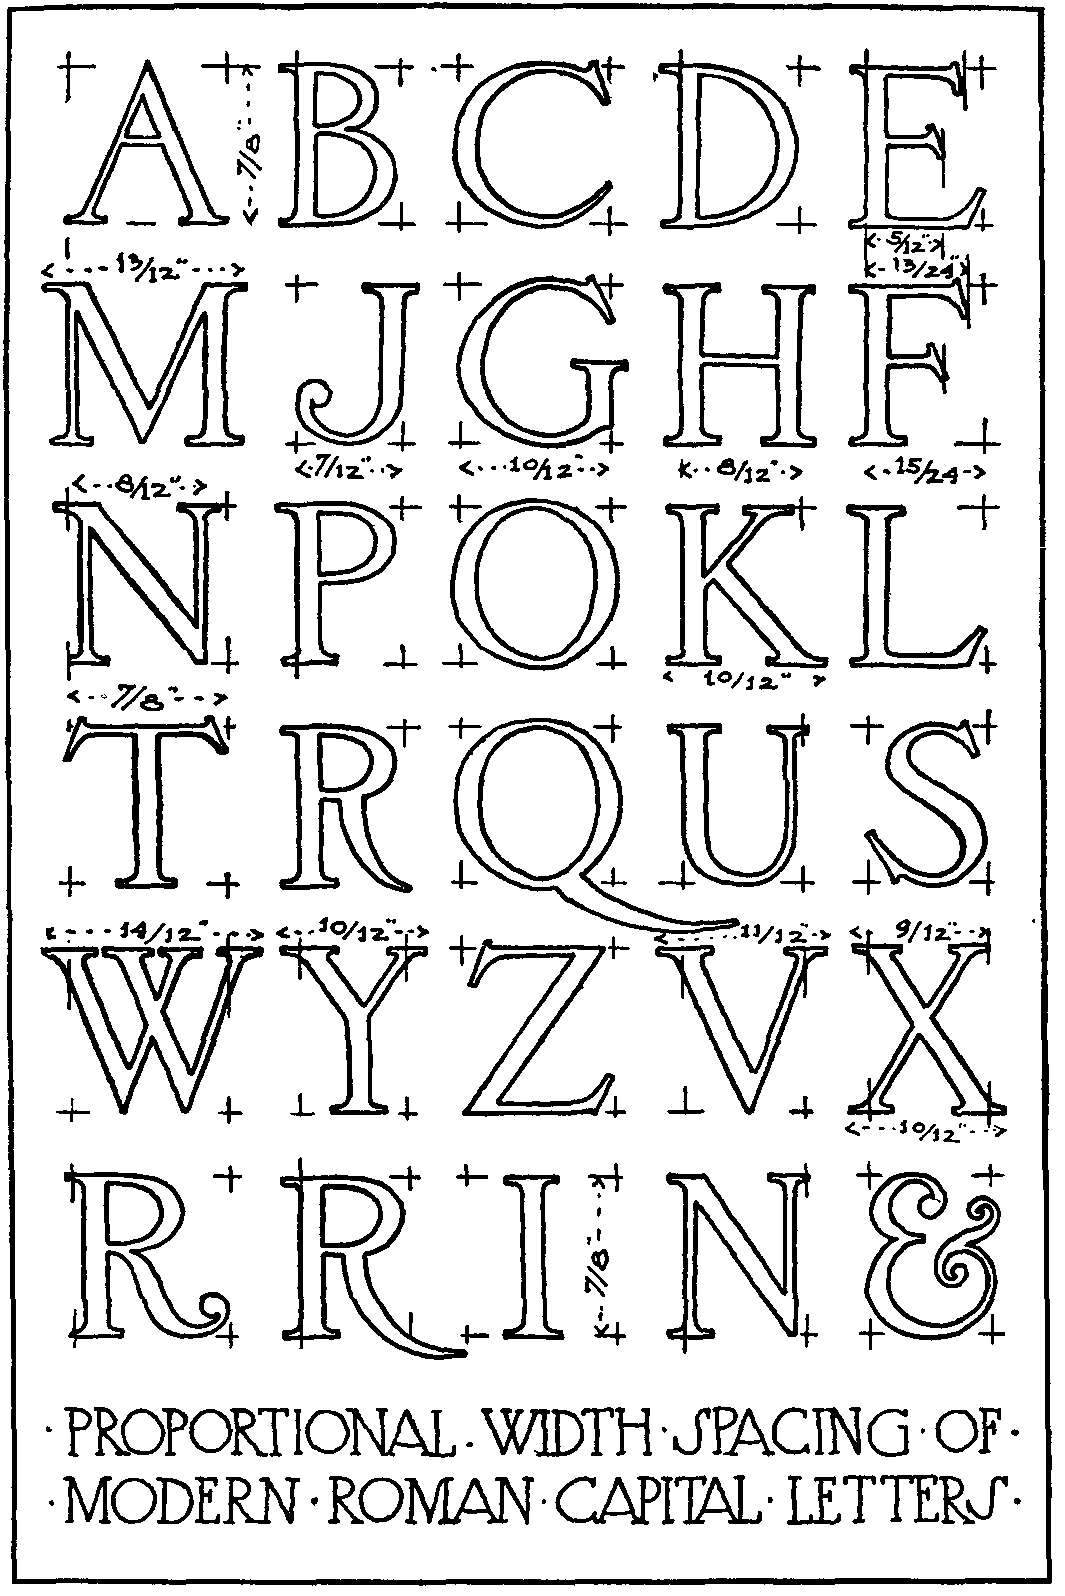 A 7/8" B C D E
5/12"
13/12" 13/24"
M J G H F
7/12" 10/12" 8/12" 15/24
8/12"
N P O K L
10/12"
7/8"
T R Q U S
14/12" 10/12" 11/12" 9/12"
W Y Z V X
10/12"
R R I 7/8" N &
·PROPORTIONAL·WIDTH·SPACING·OF·
·MODERN·ROMAN·CAPITAL·LETTERS·